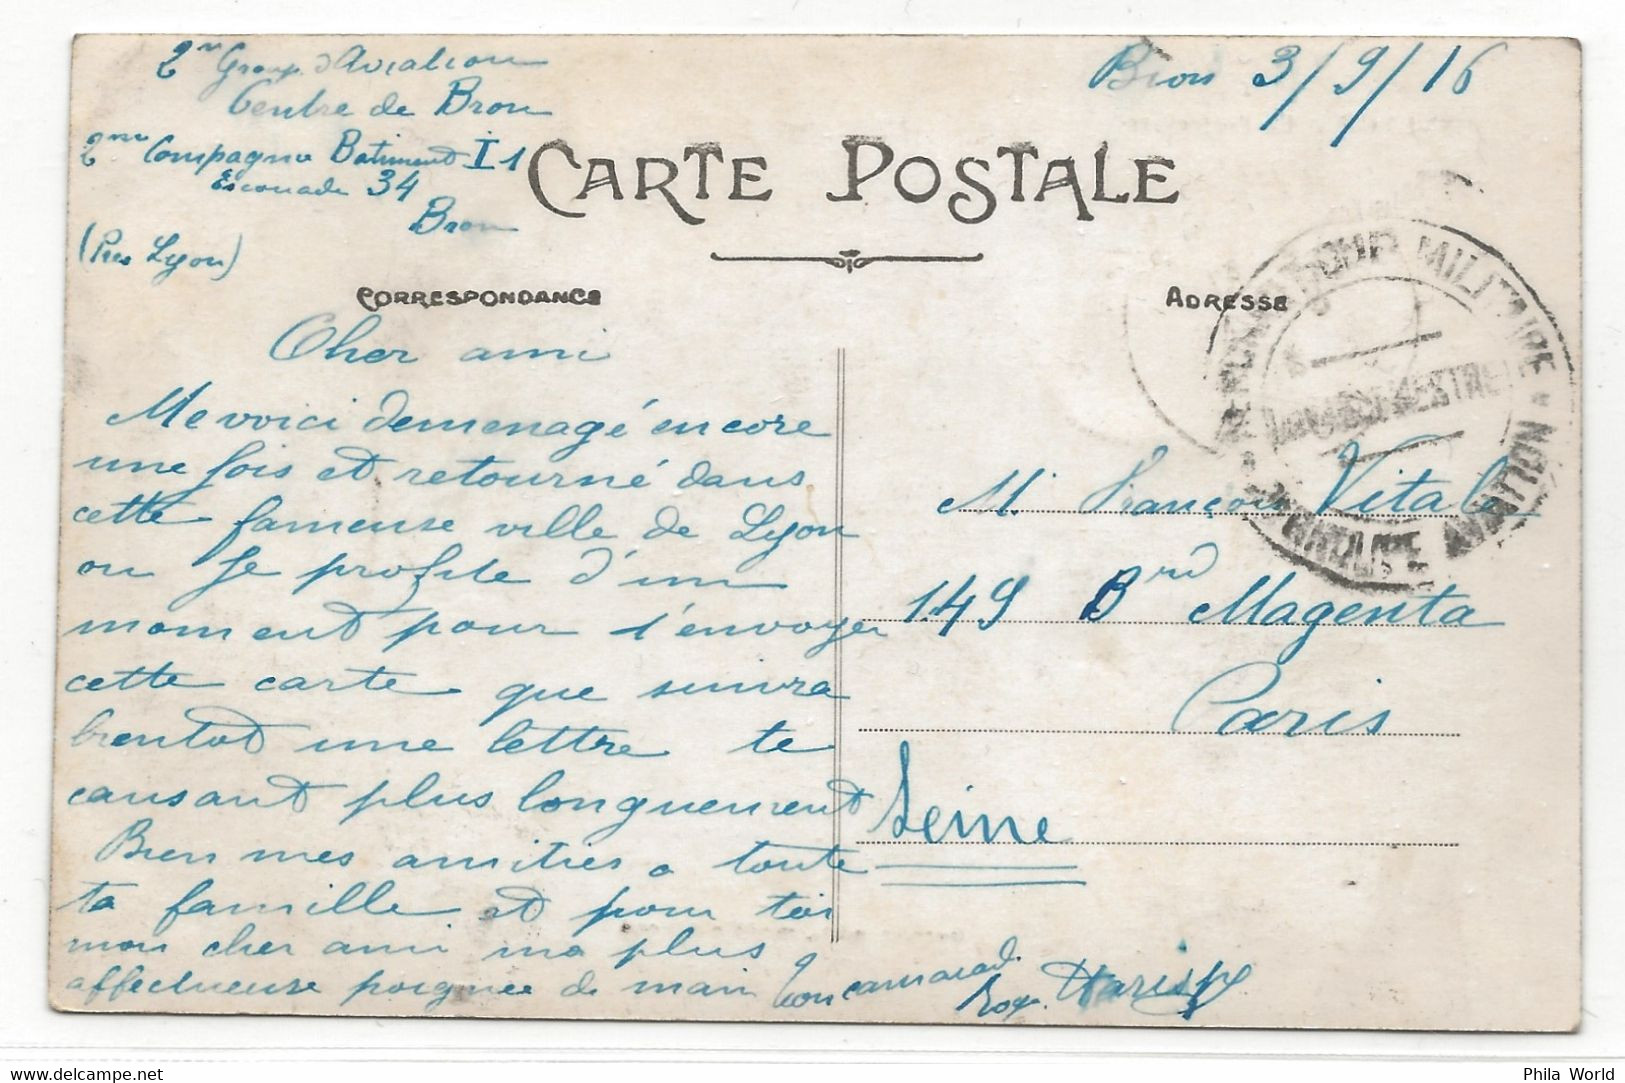 2me Group. d'Aviation
Centre de Bron
2me Compagnie Batiment I 1
Escouade 34
Bron
(Pres Lyon)
Bron 3/9/16
CARTE POSTALE
CORRESPONDANCE
ADRESSE
Cher ami
Me voici demenagé encore
une fois et retourné dans
cette fameuse ville de Lyon
ou je profite d'un
moment pour t'envoyer
cette carte que suivra
bientot une lettre te
causant plus longuement
Bien mes amitiés a toute
ta famille et pour toi
mon cher ami ma plus
affectueuse poignée de main
Ton camarad.
M. François Vitale
149 Brd Magenta
Paris
Seine
MILITAIRE * AVIATION
Phila World